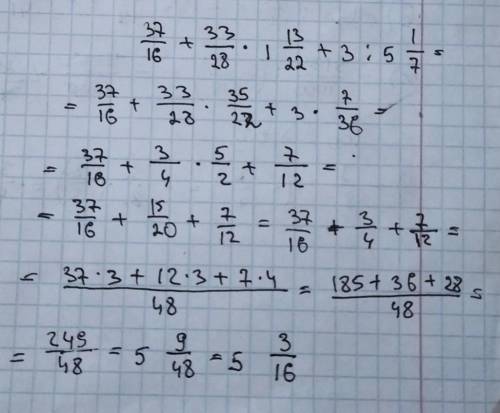 37/16 + 33/28 · 1 13/22 + 3 : 5 1/7 =
= 37/16 + 33/28 · 35/22 + 3 · 7/36 =
= 37/16 + 3/4 · 5/2 + 7/12 =
= 37/16 + 15/20 + 7/12 = 37/16 + 3/4 + 7/12 =
= 37·3 + 12·3 + 7·4/48 = 185 + 36 + 28/48 =
= 249/48 = 5 9/48 = 5 3/16